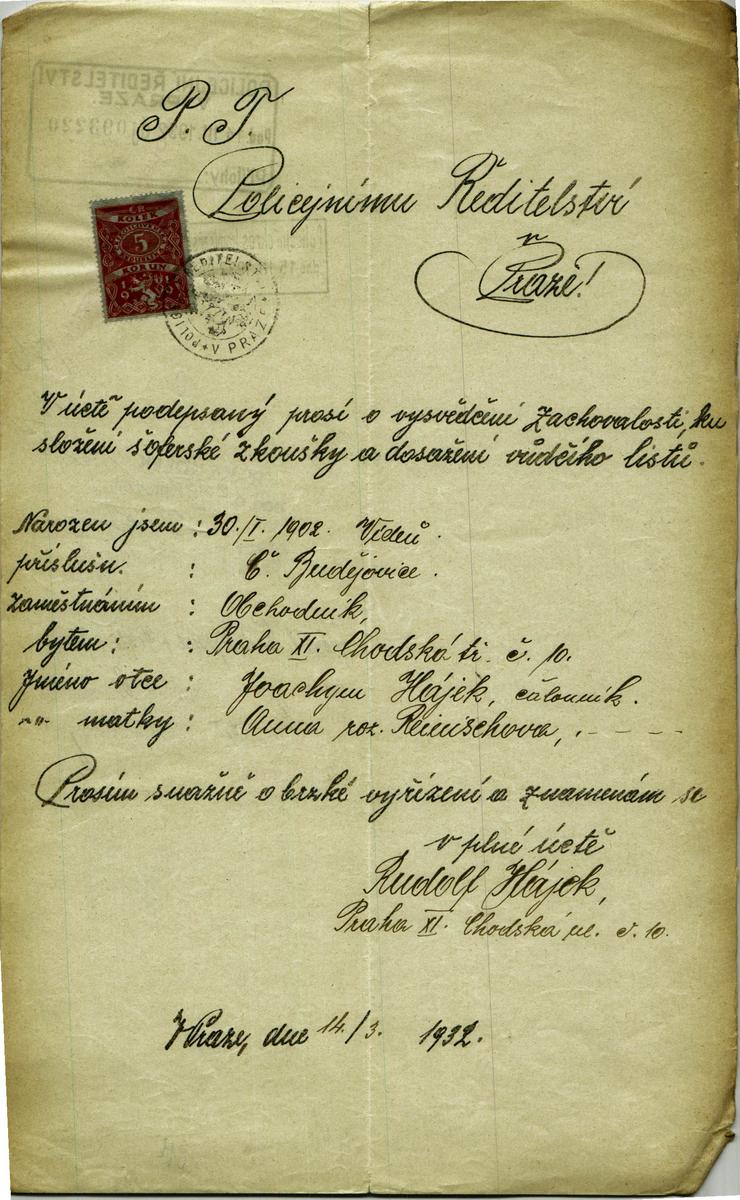 P. T.
Policejnímu Ředitelství
v
Praze!
ČR.
KOLEK
5
KORUN
POLIC ŘEDITELST V PRAZE
V úctě podepsaný prosí o vysvědčení Zachovalosti, ku
složení šoferské zkoušky a dosažení vůdčího listů.
Národzen jsem : 30./I. 1902. Vídeň.
příslušn. : Č. Budějovice.
zaměstnáním : Obchodník,
bytem : : Praha XI. Chodská tř. č. 10.
Jméno otce : Joachym Hájek, čalouník.
-"- matky : Anna roz. Reinischova, . - - - -
Prosím snažně o brzké vyřízení a znamenám se
v plné úctě
Rudolf Hájek,
Praha XI. Chodská ul. č. 10.
V Praze, dne 14./3. 1932.